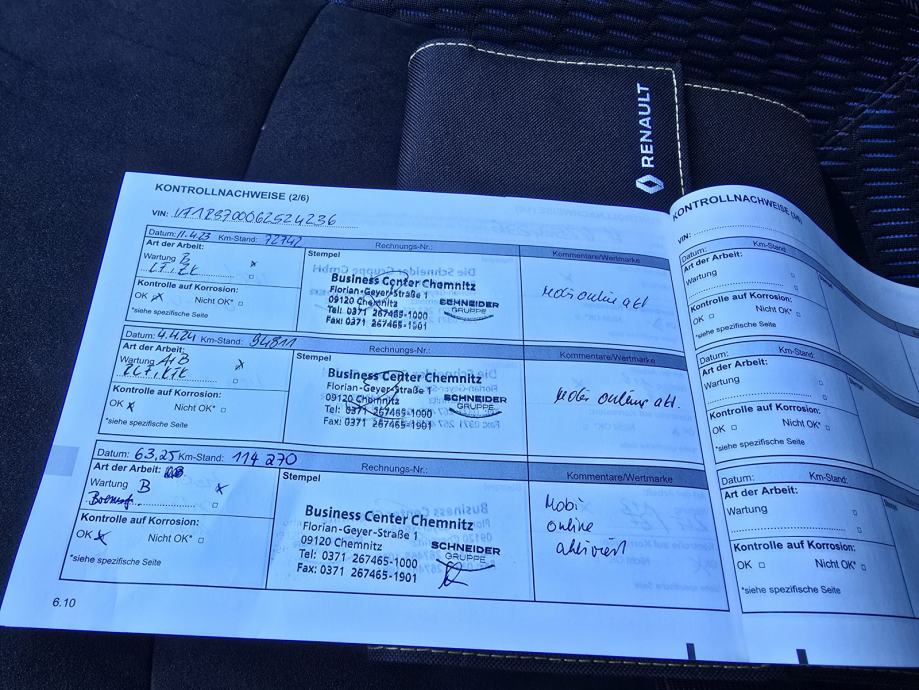 RENAULT
KONTROLLNACHWEISE (2/6)
VIN: VF1RS700062524236
Datum: 11.4.23 Km-Stand: 72742 Rechnungs-Nr.:
Art der Arbeit:
Wartung B x
LF. EK
Kontrolle auf Korrosion:
OK x Nicht OK*
*siehe spezifische Seite
Stempel
Business Center Chemnitz
Florian-Geyer-Straße 1
09120 Chemnitz
Tel: 0371 267465-1000
Fax: 0371 267465-1901
SCHNEIDER
GRUPPE
Kommentare/Wertmarke
Mobi online akt.
Datum: 4.4.24 Km-Stand: 94811 Rechnungs-Nr.:
Art der Arbeit:
Wartung A+B x
Kontrolle auf Korrosion:
OK x Nicht OK*
*siehe spezifische Seite
Stempel
Business Center Chemnitz
Florian-Geyer-Straße 1
09120 Chemnitz
Tel: 0371 267465-1000
Fax: 0371 267465-1901
SCHNEIDER
GRUPPE
Kommentare/Wertmarke
Mobi online akt.
Datum: 6.3.25 Km-Stand: 114 270 Rechnungs-Nr.:
Art der Arbeit:
Wartung B x
Kontrolle auf Korrosion:
OK x Nicht OK*
*siehe spezifische Seite
Stempel
Business Center Chemnitz
Florian-Geyer-Straße 1
09120 Chemnitz
Tel: 0371 267465-1000
Fax: 0371 267465-1901
SCHNEIDER
GRUPPE
Kommentare/Wertmarke
Mobi
online
aktiviert
6.10
KONTROLLNACHWEISE
VIN:
Datum: Km-Stand:
Art der Arbeit:
Wartung
Kontrolle auf Korrosion:
OK Nicht OK*
*siehe spezifische Seite
Datum: Km-Stand:
Art der Arbeit:
Wartung
Kontrolle auf Korrosion:
OK Nicht OK*
*siehe spezifische Seite
Datum: Km-Stand:
Art der Arbeit:
Wartung
Kontrolle auf Korrosion:
OK Nicht OK*
*siehe spezifische Seite